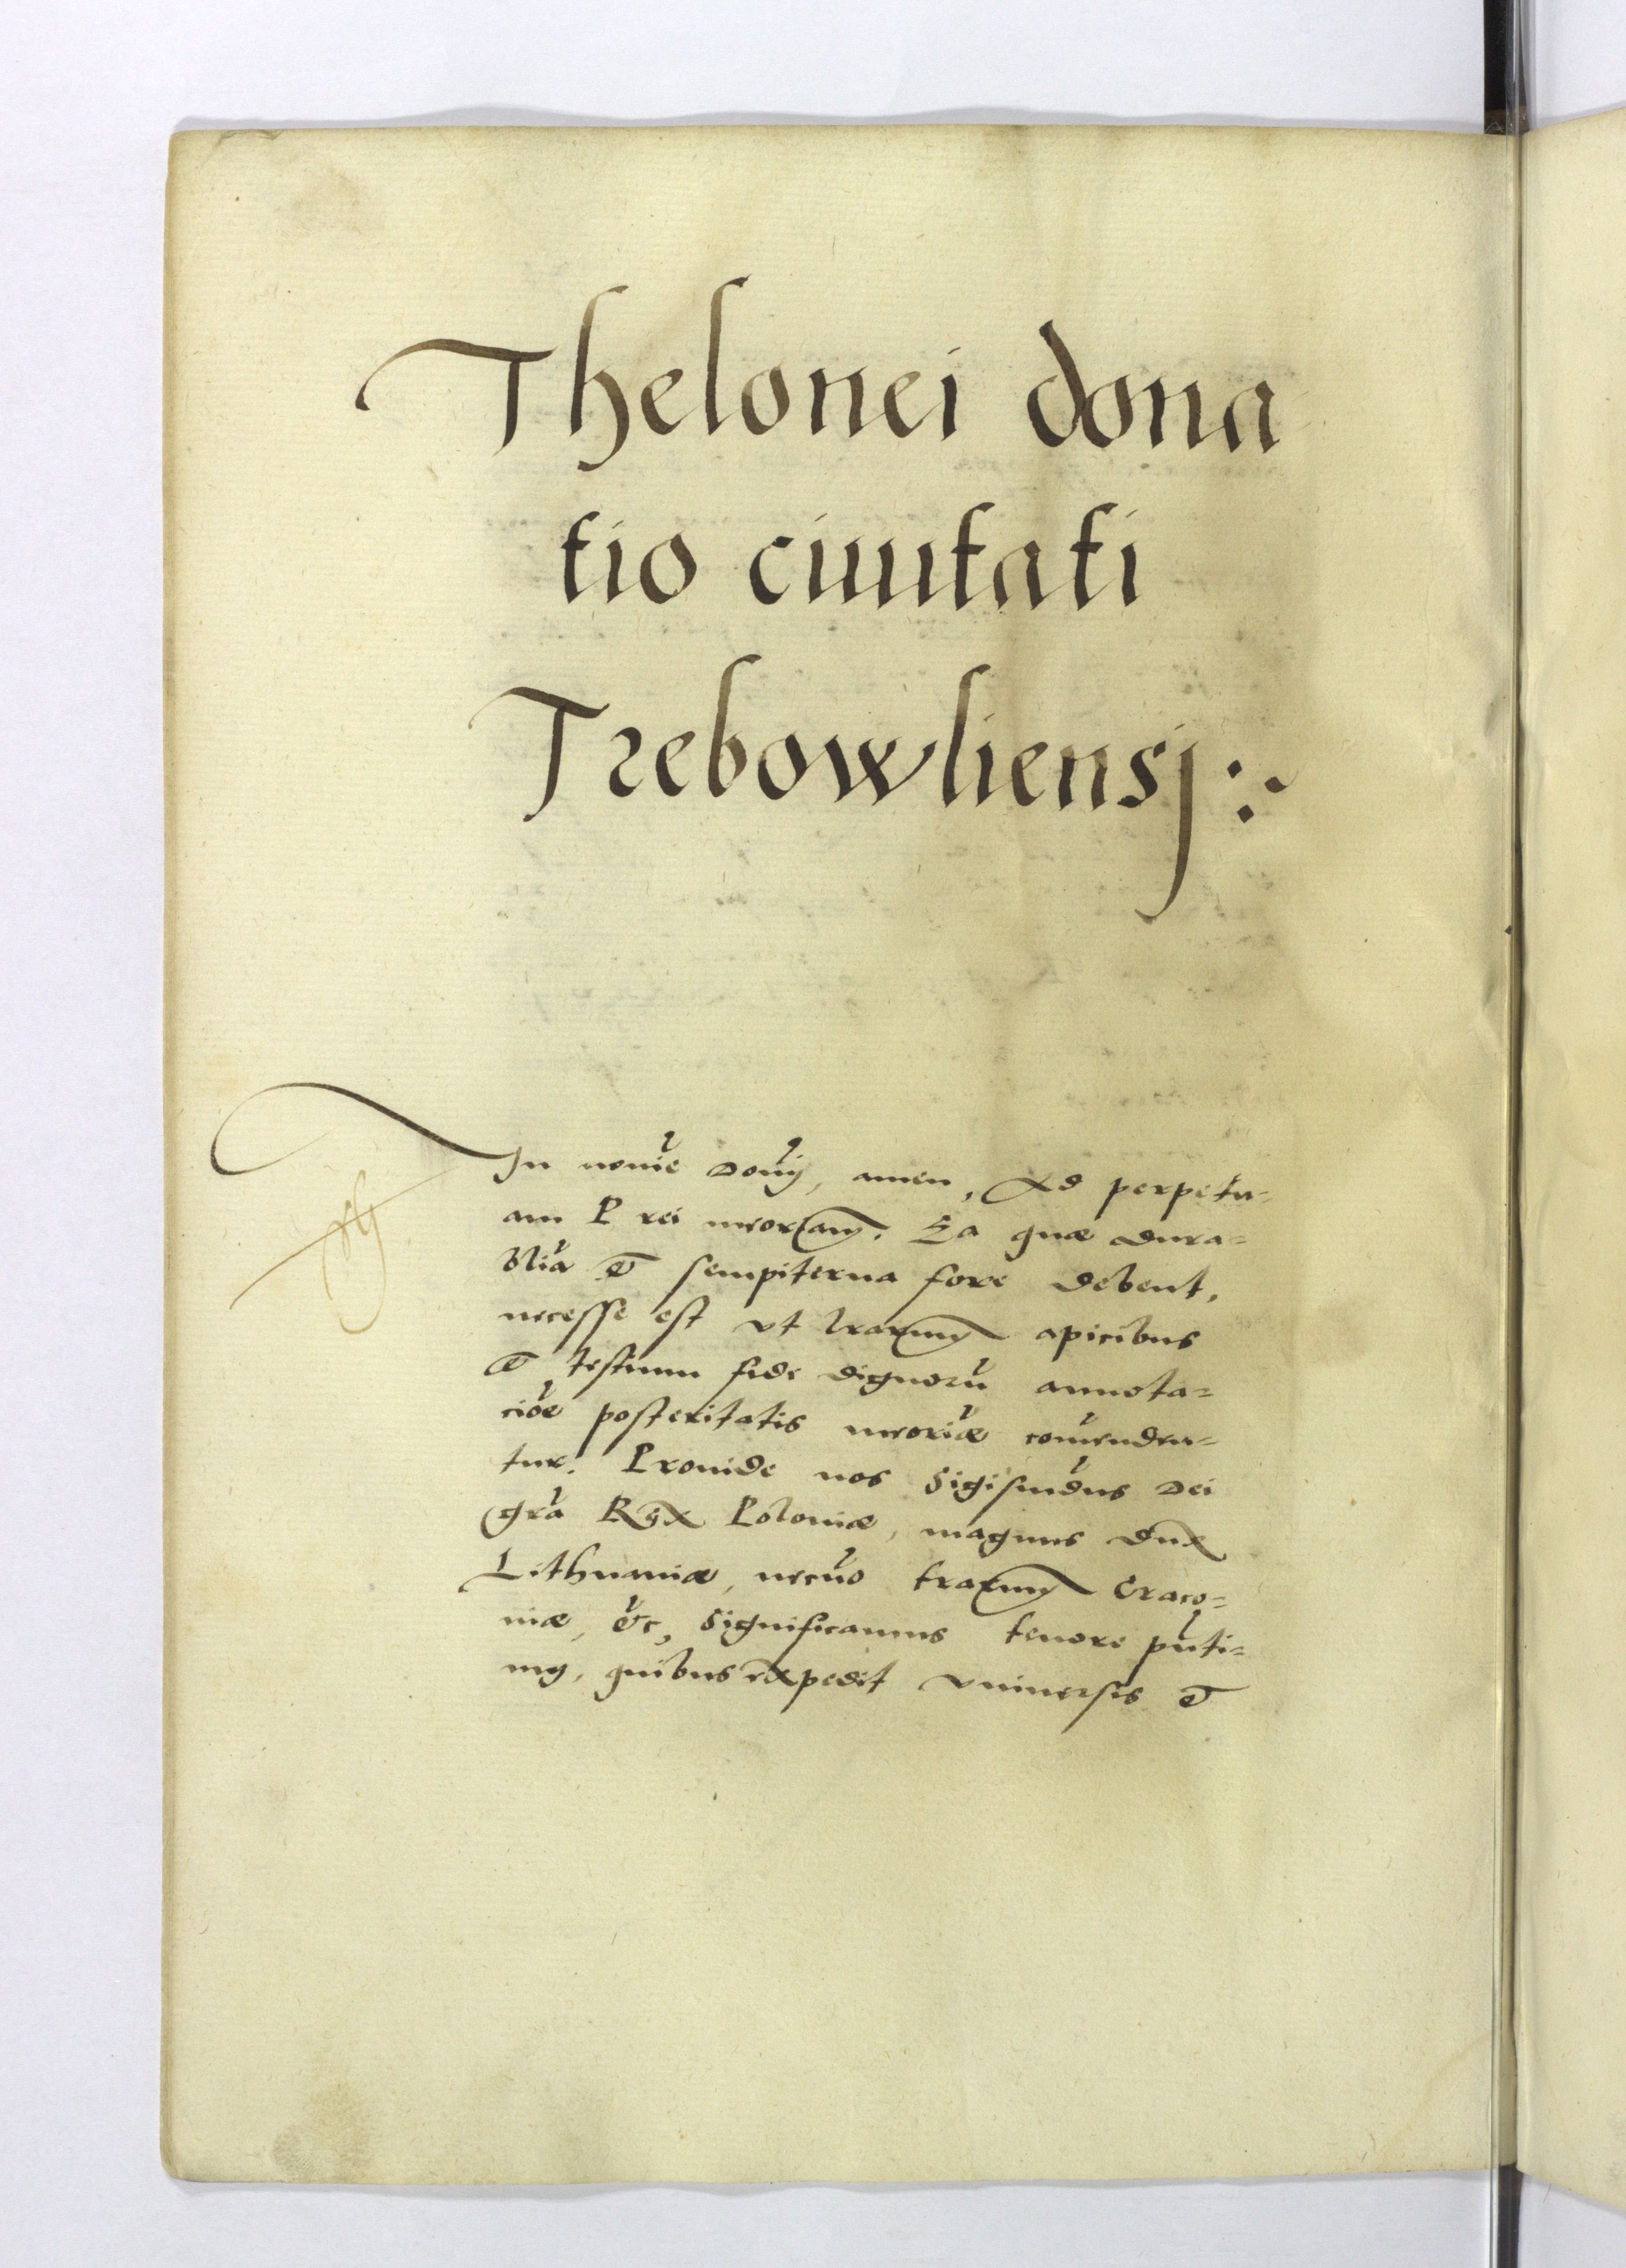 Thelonei dona
tio ciuitati
Trebowliensj :~
In noīe Doīnj, amen, Ad perpetu=
am P rei meoriam. Ea quæ dura=
blia et sempiterna fore debent,
necesse est vt lrarum apicibus
et testium fide dignorū annota=
cioe posteritatis meoriæ comendēn=
tur. Prouide nos Sigismdus Dei
gra Rex Poloniæ, magnus dux
Lithuaniæ, necno trarum Craco=
niæ, etc, Significamus tenore pnti=
um, quibus expedit vniuersis et